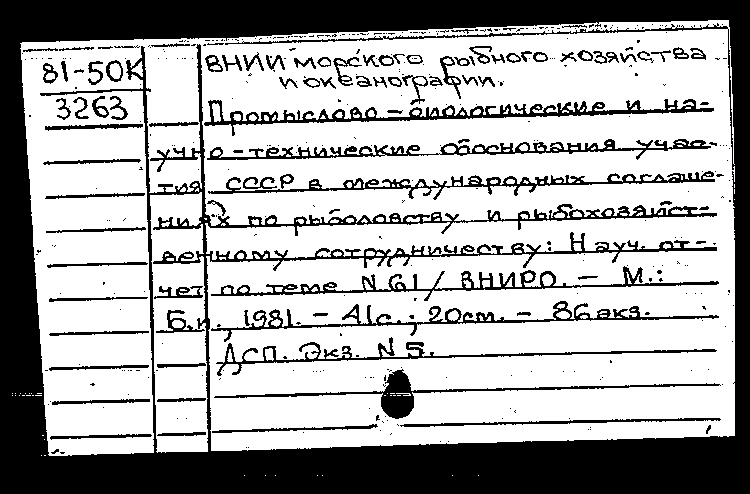 81-50К
3263
ВНИИ морского рыбного хозяйства
и океанографии.
Промыслово-биологические и на-
учно-технические обоснования учас-
тия СССР в международных соглаше-
ниях по рыболовству и рыбохозяйст-
венному сотрудничеству: Науч. от-
чет по теме N 61 / ВНИРО. - М.:
Б.и., 1981. - 41с.; 20см. - 86 экз.
ДСП. Экз. N 5.